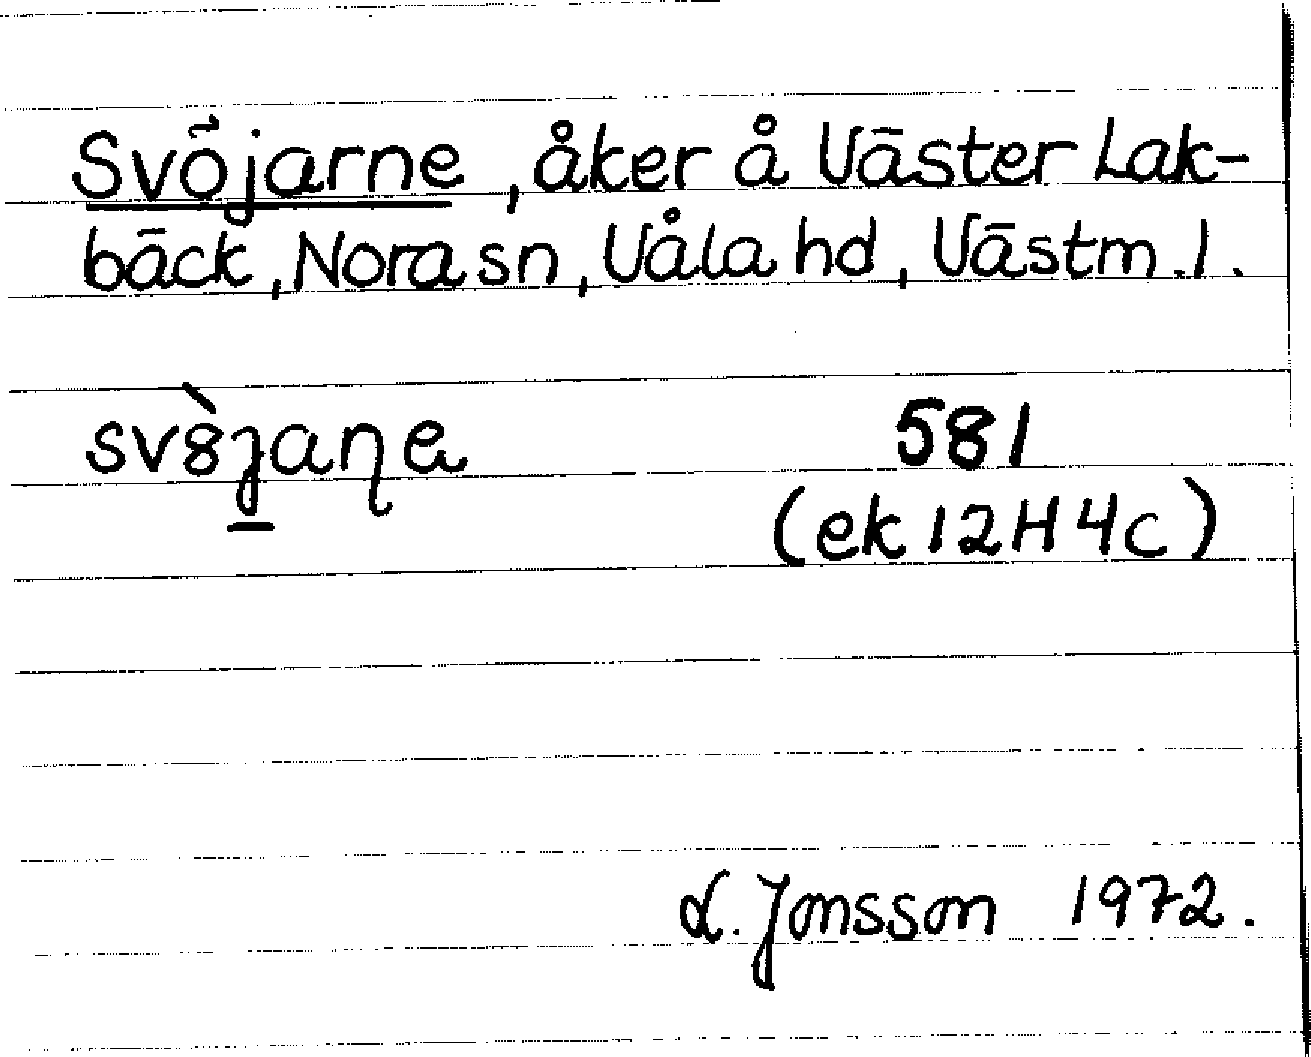 Svöjarne, åker å Väster Lak-
bäck, Nora sn, Våla hd, Västm. l.
581
(ek 12H 4c)
L. Jonsson 1972.